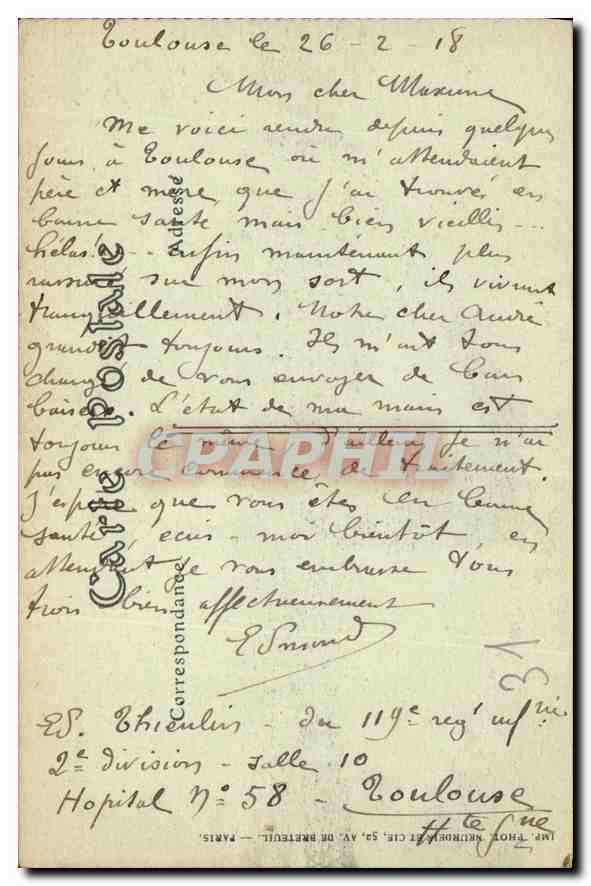 Toulouse le 26-2-18
Mon cher Maxime
Me voici rendu depuis quelques
jours à Toulouse où m'attendaient
père et mère, que j'ai trouvés en
bonne santé mais bien vieillis...
hélas!... enfin maintenant plus
rassurés sur mon sort, ils vivent
tranquillement. Notre cher André
grandit toujours. Ils m'ont tous
chargé de vous envoyer de bons
baisers. L'état de ma main est
toujours le même, d'ailleurs je n'ai
pas encore commencé de traitement.
J'espère que vous êtes en bonne
santé, écris-moi bientôt, en
attendant je vous embrasse tous
trois bien affectueusement
Edmond
31
Ed. Thieulin - du 119e regt infrie
2e division - salle 10
Hopital No 58 - Toulouse
Hte Gne
Carte Postale
Correspondance
Adresse
IMP. PHOT. NEURDEIN ET CIE, 52, AV. DE BRETEUIL. — PARIS.
CPAPHIL